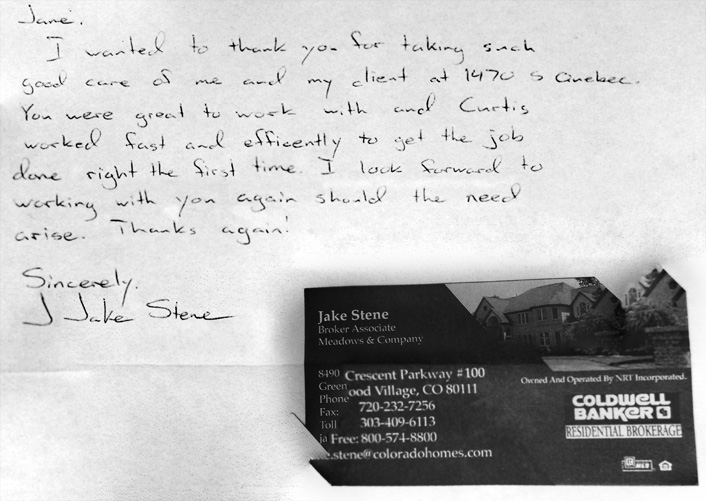 Jane,
I wanted to thank you for taking such
good care of me and my client at 1470 S Quebec.
You were great to work with and Curtis
worked fast and efficently to get the job
done right the first time. I look forward to
working with you again should the need
arise. Thanks again!
Sincerely,
J Jake Stene
Jake Stene
Broker Associate
Meadows & Company
8490 Crescent Parkway #100
Green ood Village, CO 80111
Phone 720-232-7256
Fax: 303-409-6113
Toll Free: 800-574-8800
ja e.stene@coloradohomes.com
Owned And Operated By NRT Incorporated.
COLDWELL
BANKER
RESIDENTIAL BROKERAGE
MLS